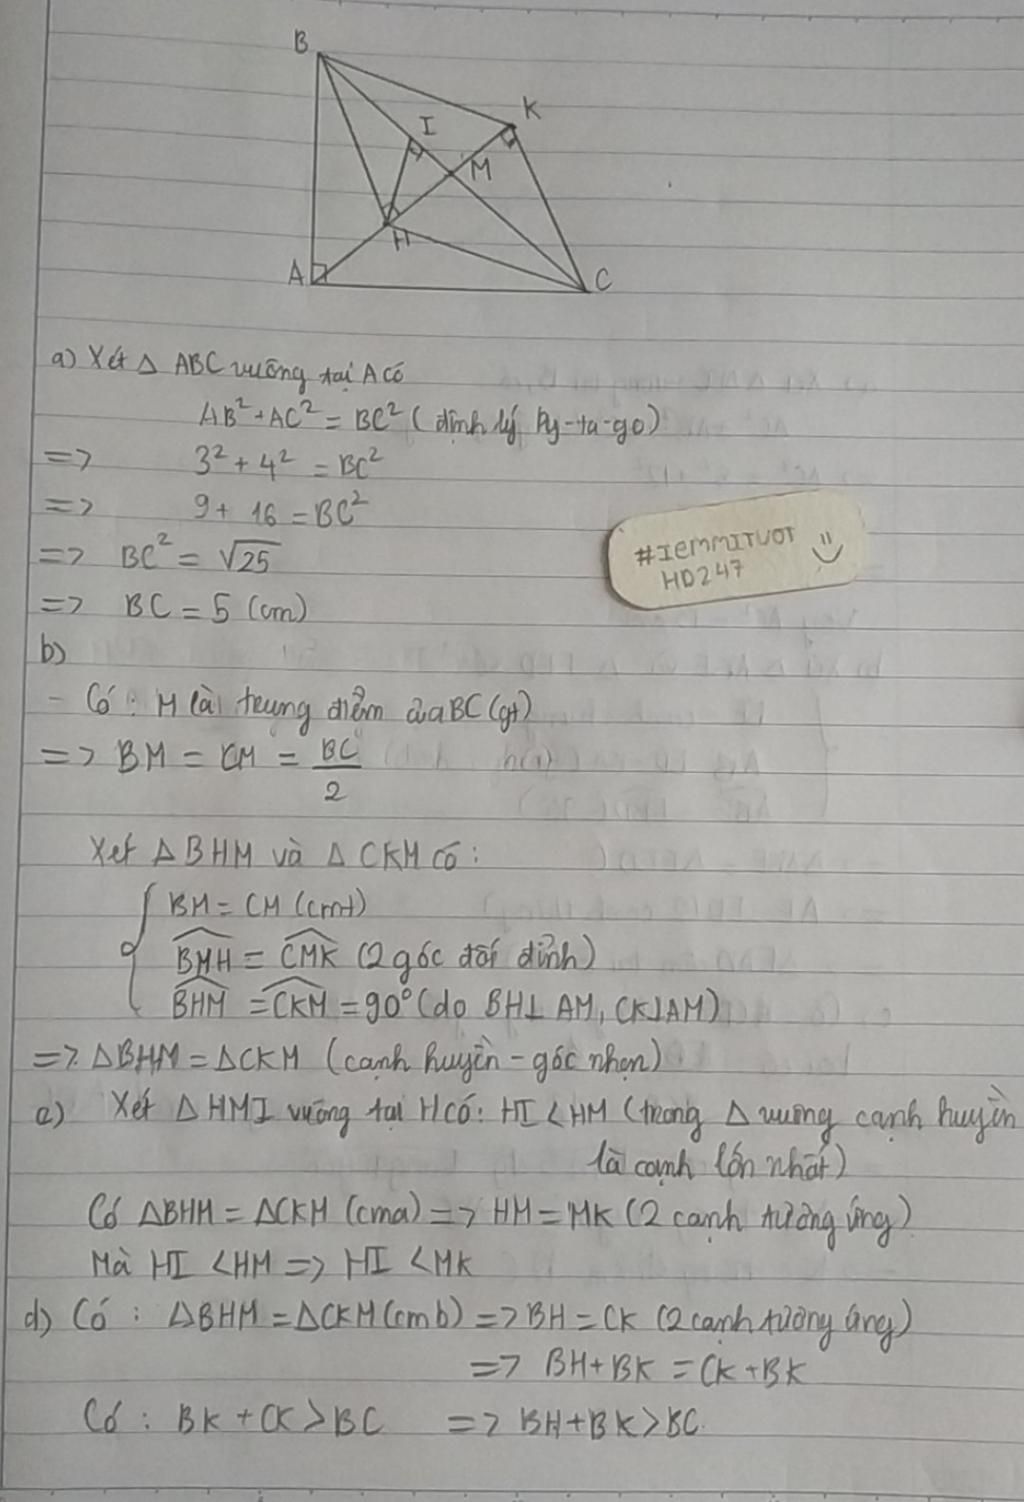 B
K
I
M
H
A
C
a) Xét Δ ABC vuông tại A có
AB² + AC² = BC² (định lý Py-ta-go)
=> 3² + 4² = BC²
=> 9 + 16 = BC²
=> BC² = √25
=> BC = 5 (cm)
#IEMMITUOT
HD247
b)
- Có : M là trung điểm của BC (gt)
=> BM = CM = BC/2
Xét Δ BHM và Δ CKM có :
BM = CM (cmt)
BMH = CMK (2 góc đối đỉnh)
BHM = CKM = 90° (do BH⊥ AM, CK⊥AM)
=> ΔBHM = ΔCKM (cạnh huyền - góc nhọn)
c) Xét Δ HMI vuông tại H có : HI < HM (trong Δ vuông cạnh huyền
là cạnh lớn nhất)
Có ΔBHM = ΔCKM (cma) => HM = MK (2 cạnh tương ứng)
Mà HI < HM => HI < MK
d) Có : ΔBHM = ΔCKM (cmb) => BH = CK (2 cạnh tương ứng)
=> BH + BK = CK + BK
Có : BK + CK > BC => BH + BK > BC.